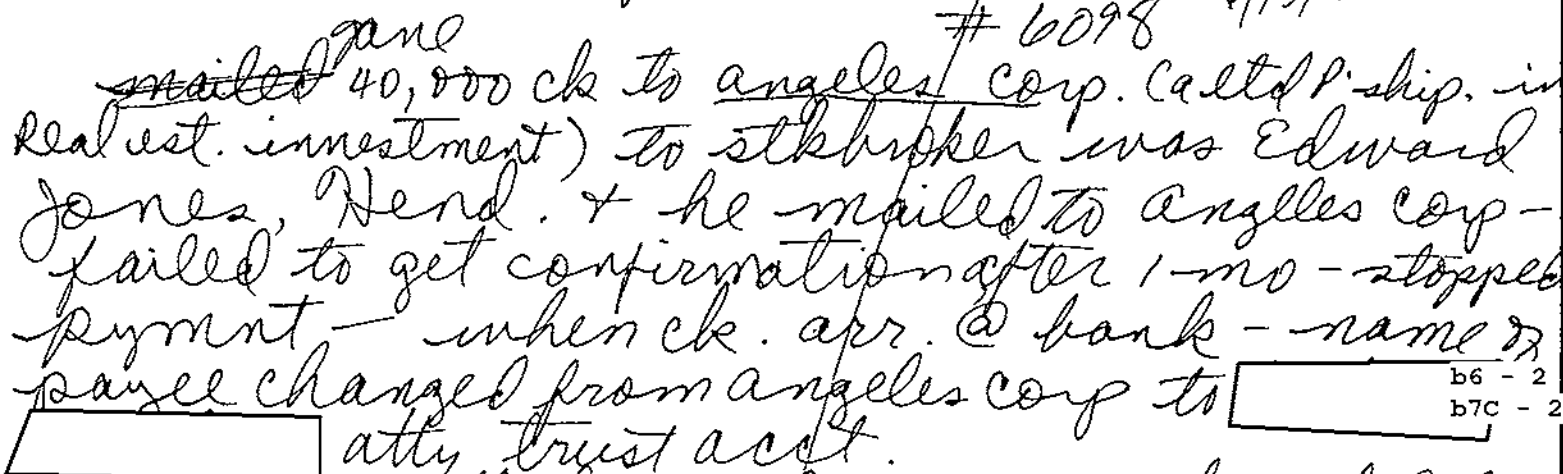 gave # 6098
mailed 40,000 ck to angeles corp. (a ltd P'ship. in
Real est. investment) to stkbroker was Edward
Jones, Hend. & he mailed to Angeles corp -
failed to get confirmation after 1-mo - stopped
pymnt - when ck. arr. @ bank - name of
payee changed from angeles corp to b6 - 2
b7C - 2
atty trust acct.